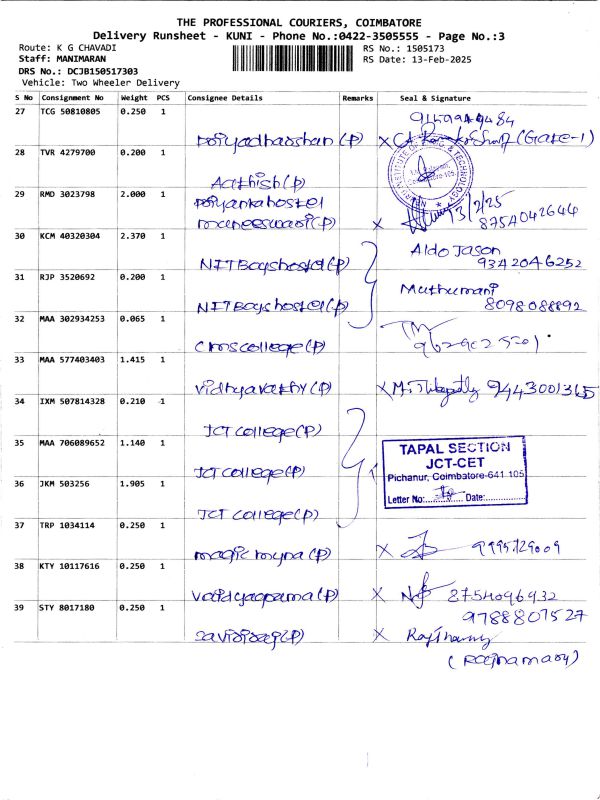 THE PROFESSIONAL COURIERS, COIMBATORE
Delivery Runsheet - KUNI - Phone No.:0422-3505555 - Page No.:3
Route: K G CHAVADI RS No.: 1505173
Staff: MANIMARAN RS Date: 13-Feb-2025
DRS No.: DCJB150517303
Vehicle: Two Wheeler Delivery
S No Consignment No Weight PCS Consignee Details Remarks Seal & Signature
27 TCG 50810805 0.250 1
(p) (Gate-1)
28 TVR 4279700 0.200 1
Aathish(p)
29 RMD 3023798 2.000 1 Priyanka hostel
muneeswari(p) x 13/2/25
8754042644
30 KCM 40320304 2.370 1 Aldo Jason
NIT Boys hostel(p) 9342046252
31 RJP 3520692 0.200 1 Muthumani
NIT Boys hostel(p) 8098088892
32 MAA 302934253 0.065 1
cms college(p)
33 MAA 577403403 1.415 1
vidhyavathy(p) x 9443001365
34 IXM 507814328 0.210 1
JCT college(p)
35 MAA 706089652 1.140 1 TAPAL SECTION
JCT-CET
JCT college(p) Pichanur, Coimbatore-641 105
36 JKM 503256 1.905 1 Letter No: Date:
JCT college(p)
37 TRP 1034114 0.250 1
magic myna(p) x 9995129009
38 KTY 10117616 0.250 1
(p) x 8754096932
39 STY 8017180 0.250 1 9788807527
(p) x